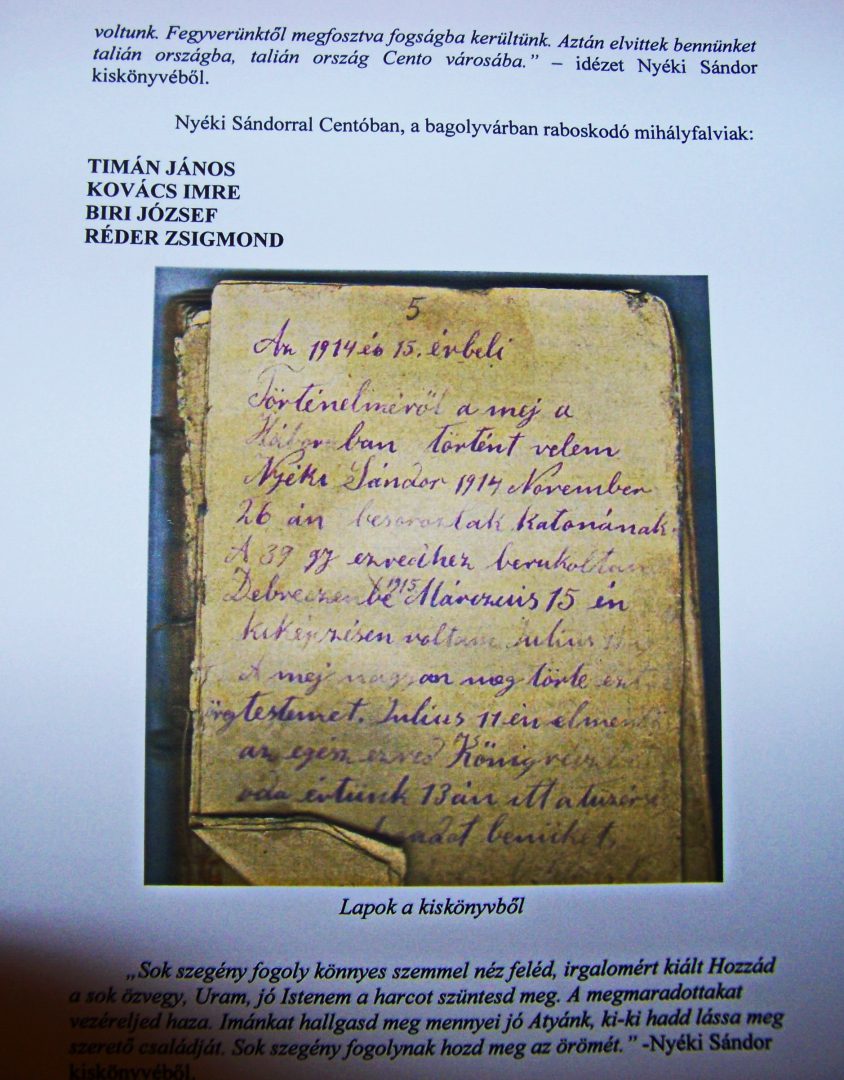 voltunk. Fegyverünktől megfosztva fogságba kerültünk. Aztán elvittek bennünket
talián országba, talián ország Cento városába.” – idézet Nyéki Sándor
kiskönyvéből.
Nyéki Sándorral Centóban, a bagolyvárban raboskodó mihályfalviak:
TIMÁN JÁNOS
KOVÁCS IMRE
BIRI JÓZSEF
RÉDER ZSIGMOND
5
Az 1914 és 15. érbeli
Történelméről a mej a
Háborban történt velem
Nyéki Sándor 1914 November
26 án besoroztak katonának
A 39 gy ezredhez berukoltam
Debreczenbe 1915 Márczius 15 én
kiképzésen voltam Julius
A mej nagyon meg törte
testemet. Julius 11 én
az egész ezred
oda értunk 13 án itt a
benüket.
Lapok a kiskönyvből
„Sok szegény fogoly könnyes szemmel néz feléd, irgalomért kiált Hozzád
a sok özvegy, Uram, jó Istenem a harcot szüntesd meg. A megmaradottakat
vezéreljed haza. Imánkat hallgasd meg mennyei jó Atyánk, ki-ki hadd lássa meg
szerető családját. Sok szegény fogolynak hozd meg az örömét.” -Nyéki Sándor
kiskönyvéből.